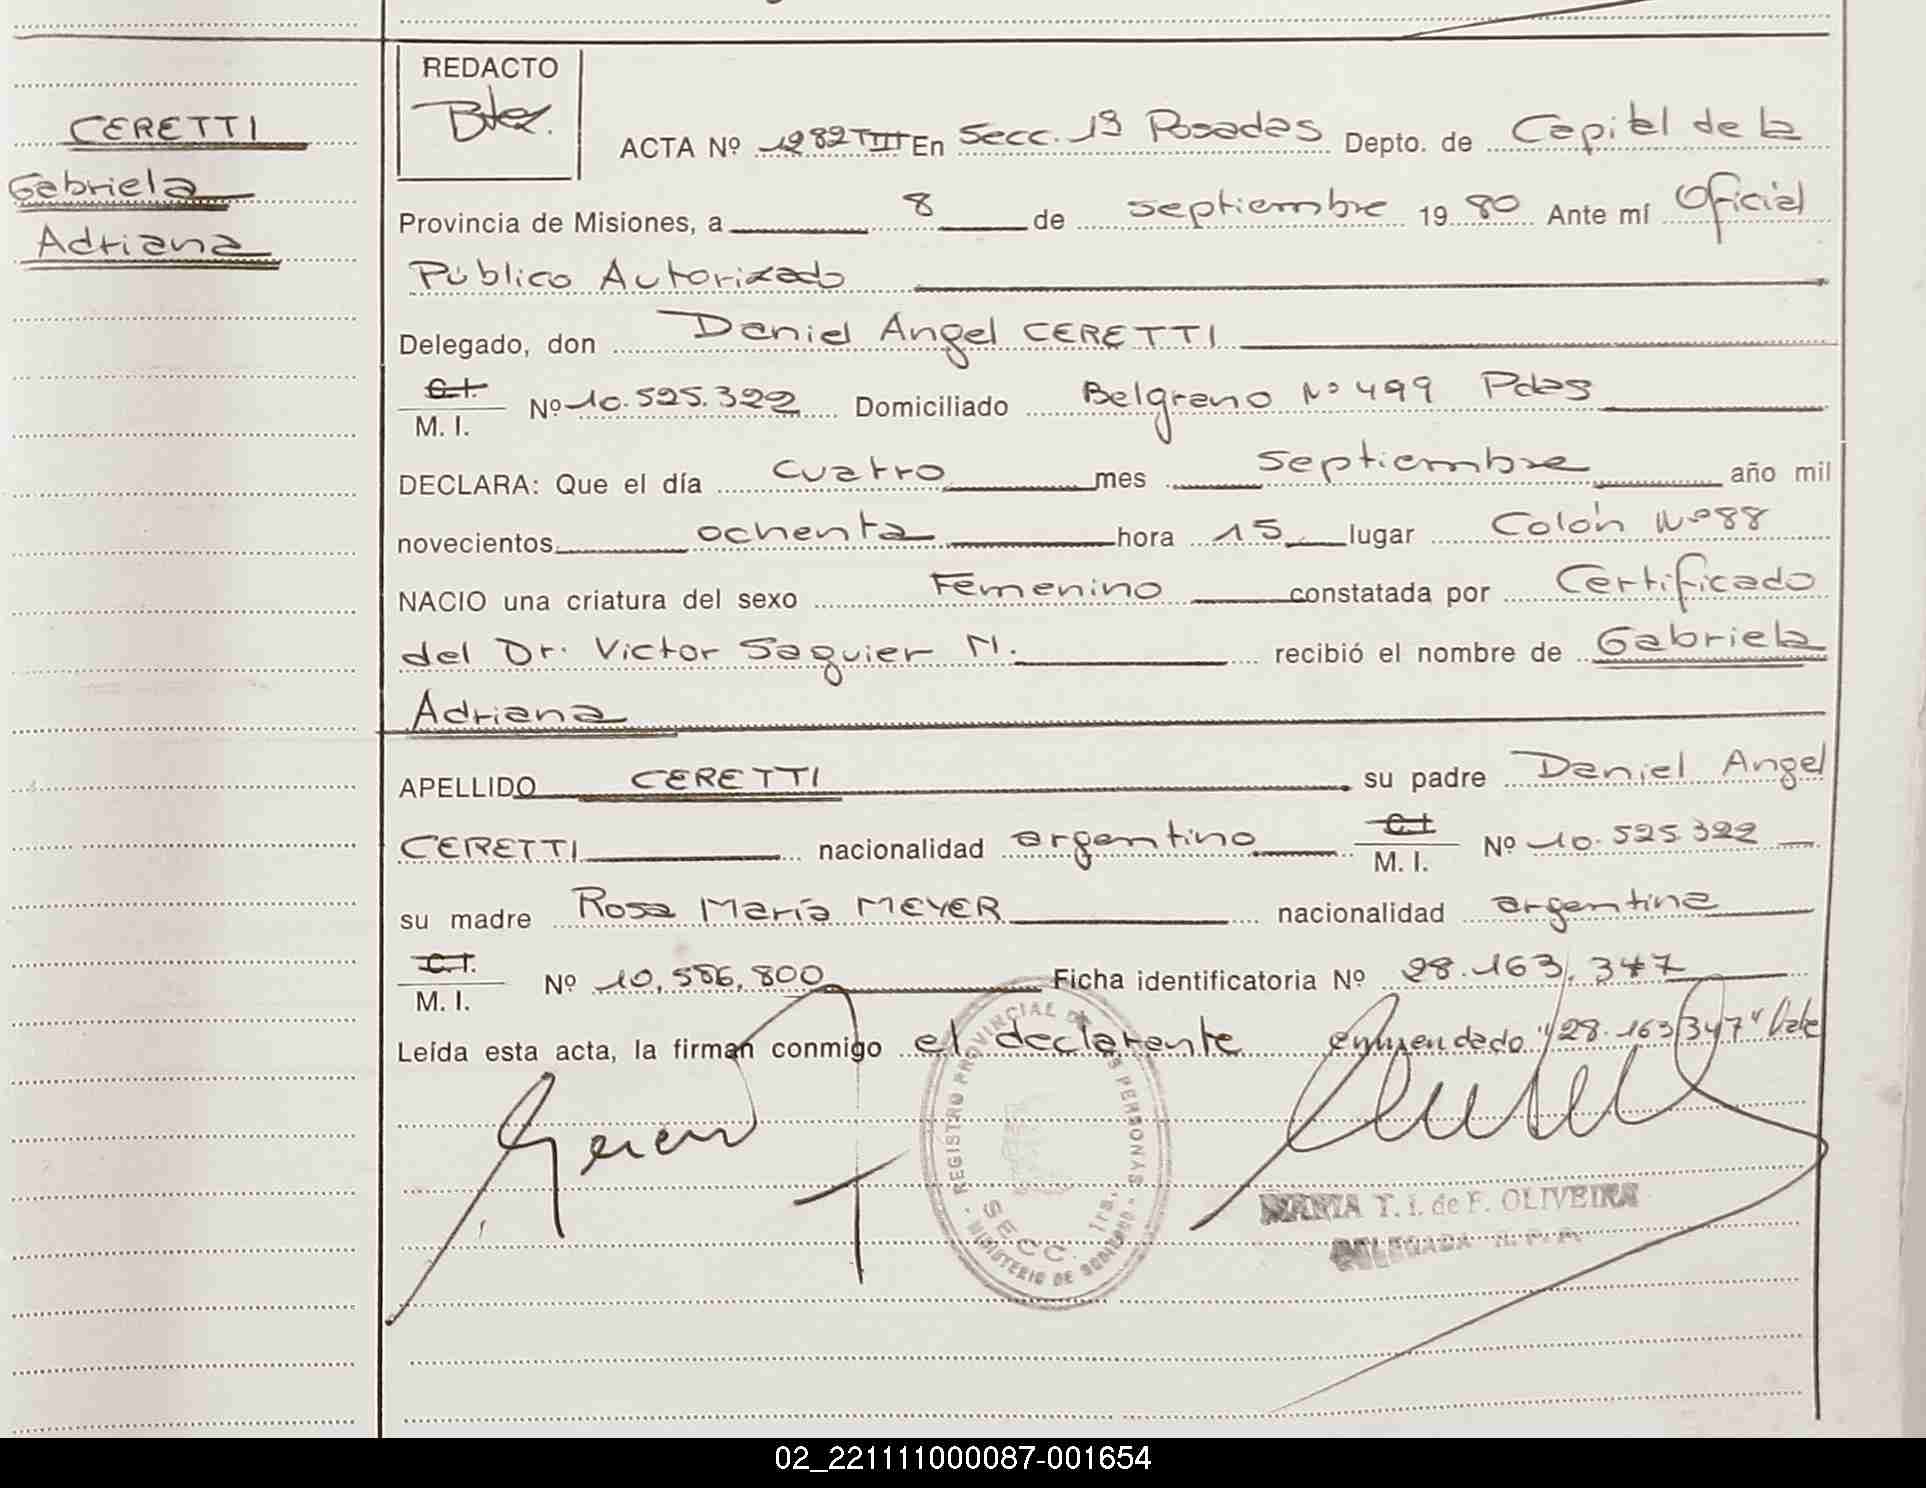 CERETTI
Gabriela
Adriana
REDACTO
ACTA Nº 1282 TIII En Secc. 1ª Posadas Depto. de Capital de la
Provincia de Misiones, a 8 de septiembre 1980 Ante mí Oficial
Público Autorizado
Delegado, don Daniel Angel CERETTI
C.I.
M. I. Nº 10.525.322 Domiciliado Belgrano Nº 499 Pdas
DECLARA: Que el día cuatro mes septiembre año mil
novecientos ochenta hora 15 lugar Colón Nº 88
NACIO una criatura del sexo Femenino constatada por Certificado
del Dr. Victor Saguier M. recibió el nombre de Gabriela
Adriana
APELLIDO CERETTI su padre Daniel Angel
CERETTI nacionalidad argentino C.I. M. I. Nº 10.525.322
su madre Rosa María MEYER nacionalidad argentina
C.I.
M. I. Nº 10,586,800 Ficha identificatoria Nº 28.163.347
Leída esta acta, la firman conmigo el declarante enmendado "28.163.347" Vale
REGISTRO PROVINCIAL DE LAS PERSONAS
SECC. 1ra.
MINISTERIO DE GOBIERNO
MARIA T. I. de F. OLIVEIRA
DELEGADA R. P. P.
02_221111000087-001654